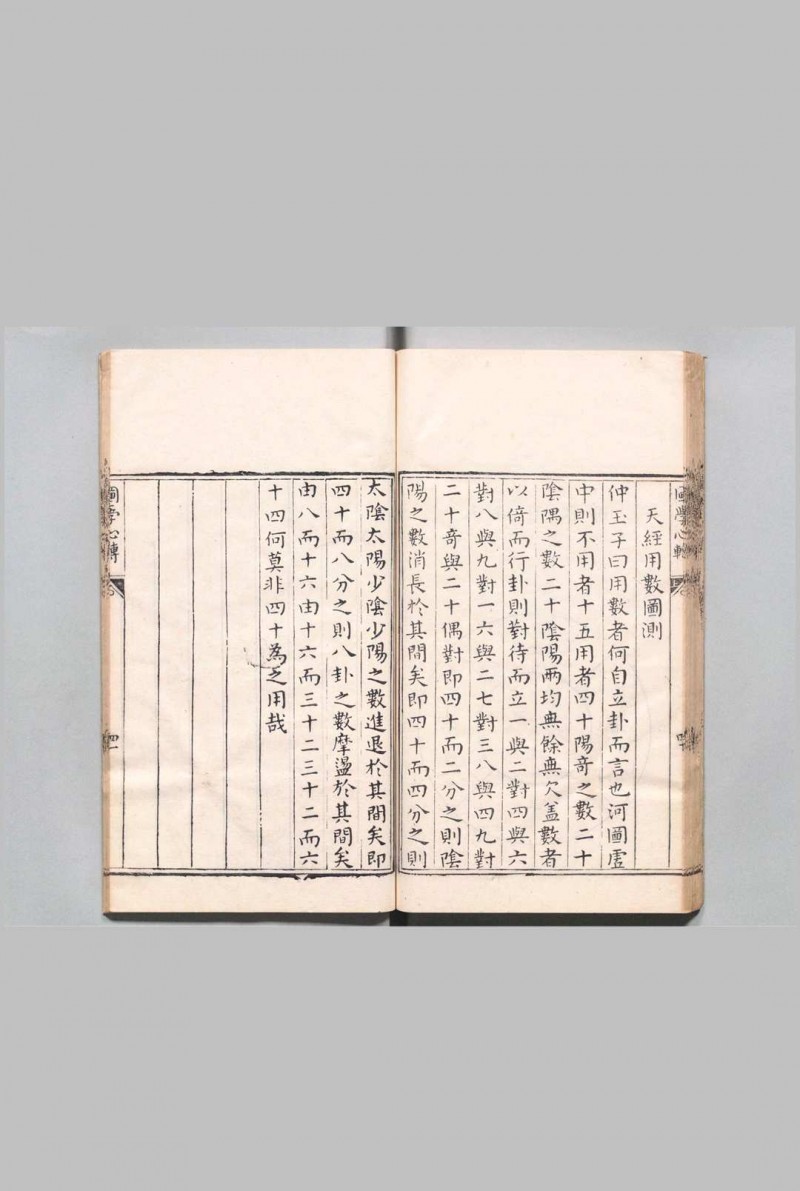 圖學心
四
天經用數圖測
仲玉子曰用數者何自立卦而言也河圖虛
中則不用者十五用者四十陽奇之數二十
陰隅之數二十陰陽兩均無餘無欠盖數者
以倚而行卦則對待而立一與二對四與六
對八與九對一六與二七對三八與四九對
二十奇與二十偶對即四十而二分之則陰
陽之數消長於其間矣即四十而四分之則
太陰太陽少陰少陽之數進退於其間矣即
四十而八分之則八卦之數摩盪於其間矣
由八而十六由十六而三十二三十二而六
十四何莫非四十為之用哉
圖學心傳
四